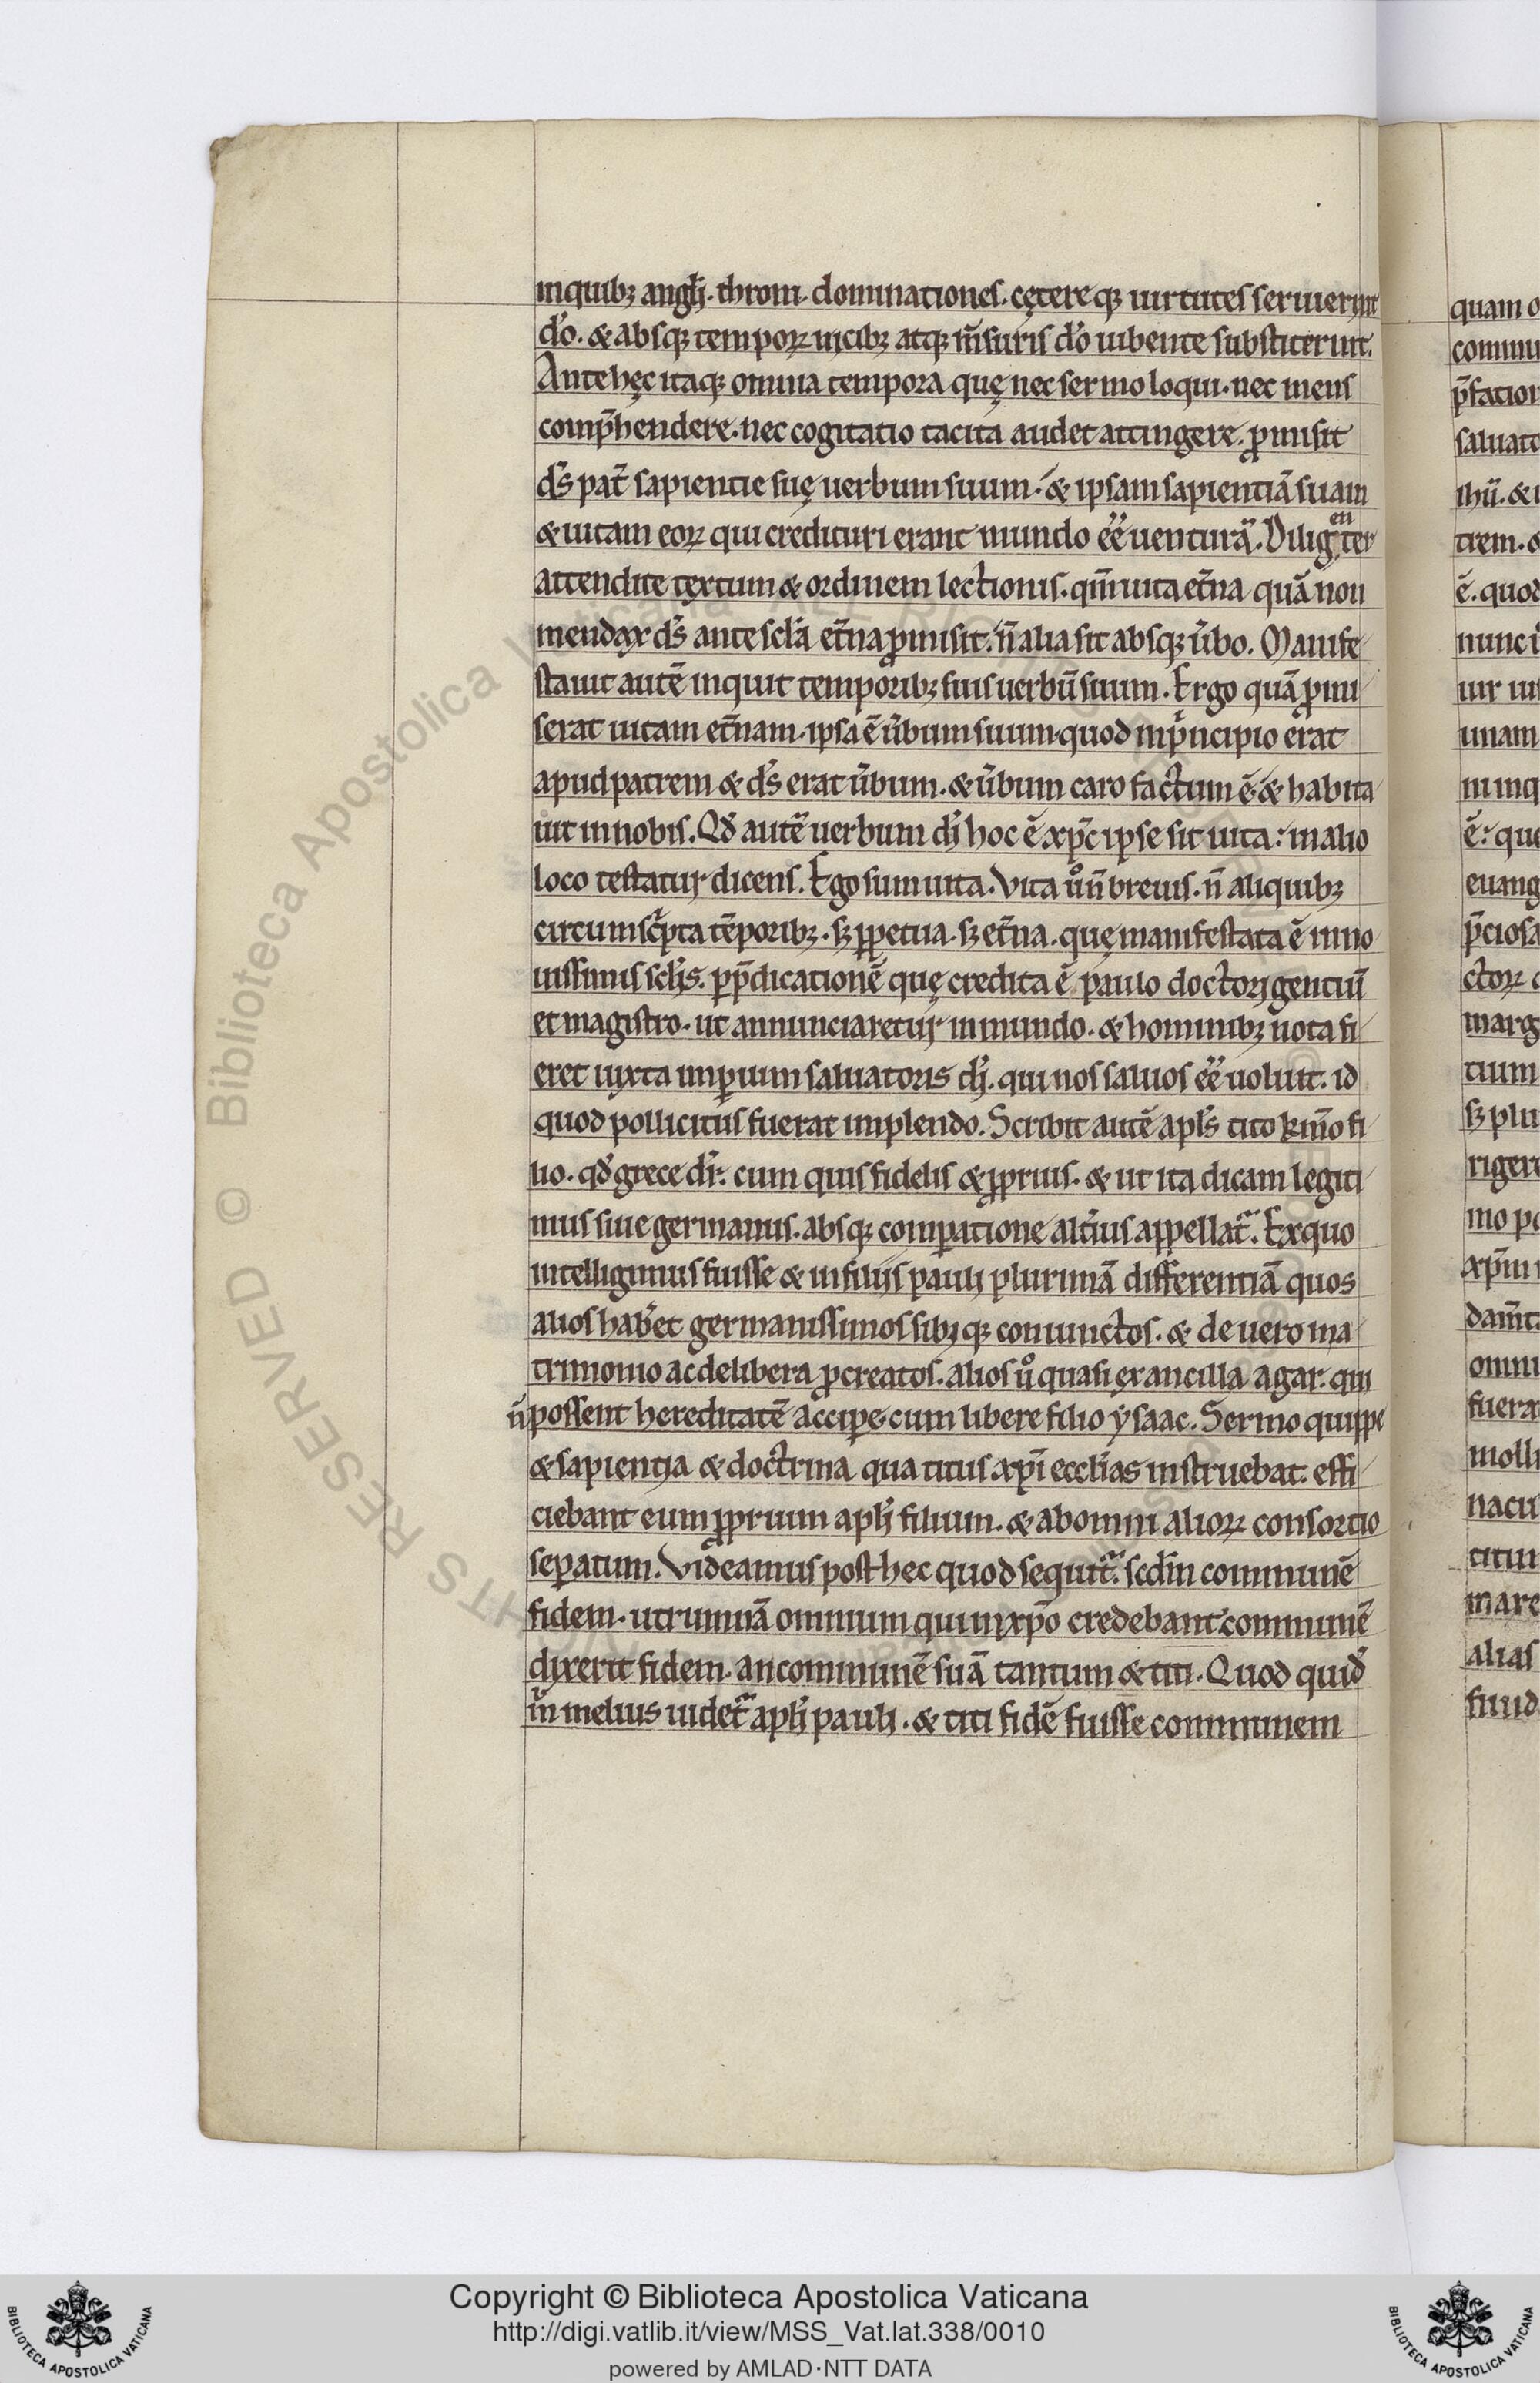 inquibꝫ angłi. throni. dominationeſ. cęterę qꝫ uirtuteſ seruierunt
d̄o. & absqꝫ temporꝝ uicibꝫ atqꝫ m̄suris d̄o iubente substiterunt.
Ante hęc itaqꝫ omnia tempora quę nec sermo loqui. nec mens
comp̄hendere. nec cogitatio tacita audet attingere. ꝓmisit
d̄s pat̄ sapientie suę uerbum suum. & ipsam sapientiā suam
& uitam eoꝝ qui credituri erant mundo eē uenturā. Diligenter
attendite textum & ordinem lectionis. qm̄ uita et̄na quā non
mendax d̄s ante scl̄a et̄na ꝓmisit. n̄ alia sit absqꝫ ūbo. Manife
stauit autē inquit temporibꝫ suis uerbū suum. Ergo quā ꝓmi
serat uitam et̄nam. ipsa ē ūbum suum quod inpͥncipio erat
apud patrem & d̄s erat ūbum. & ūbum caro factum ē & habita
uit in nobis. Qđ autē uerbum di hoc ē xp̄c ipse sit uita: in alio
loco testatur dicens. Ego sum uita. Vita uͦ n̄ breuis. n̄ aliquibꝫ
circumscͥpta tēporibꝫ. sꝫ ꝑpetua. sꝫ et̄na. quę manifestata ē in no
uissimis scl̄is. ꝑ p̄dicationē quę credita ē paulo doctori gentiū
et magistro. ut annunciaretur in mundo. & hominibꝫ nota fi
eret iuxta imꝑium saluatoris di. qui nos saluos eē uoluit. id
quod pollicitus fuerat implendo. Scribit autē apl̄s tito km̄o fi
lio. qđ grece dr̄. cum quis fidelis & ꝓprius. & ut ita dicam legiti
mus siue germanus. absqꝫ comꝑatione alt̄ius appellat̄. Ex quo
intelligimus fuisse & in filiis pauli plurimā differentiā quos
alios hab̄et germanissimos sibi qꝫ coniunctos. & de uero ma
trimonio ac de libera ꝓcreatos. alios uͦ quasi ex ancilla agar. qui
n̄ possent hereditatē acciꝑe cum libere filio ysaac. Sermo quippe
& sapientia & doctrina qua titus xp̄i eccl̄ias instruebat. effi
ciebant eum ꝓprium apłi filium. & ab omni alioꝝ consortio
seꝑatum. Videamus post hec quod sequit̄. scd̄m communē
fidem. utrumnā omnium qui in xp̄o credebant communē
dixerit fidem. an communē suā tantum & titi. Quod quid̄
m̄ melius uidet̄ apłi pauli. & titi fidē fuisse communem
quam o
p̄fation
saluato
ih̄u. & 
trem. &
ē. quod
unam
inq
ē: que
euang
p̄ciosa
ctoꝝ
marg
tium
sꝫ plu
rigere
mo pa
xp̄m
dam̄ta
omni
fuera
molli
nacu
titiu
mare
alias
© Biblioteca Apostolica Vaticana ALL RIGHTS RESERVED
Copyright © Biblioteca Apostolica Vaticana
http://digi.vatlib.it/view/MSS_Vat.lat.338/0010
powered by AMLAD·NTT DATA
BIBLIOTECA APOSTOLICA VATICANA
BIBLIOTECA APOSTOLICA VATICANA